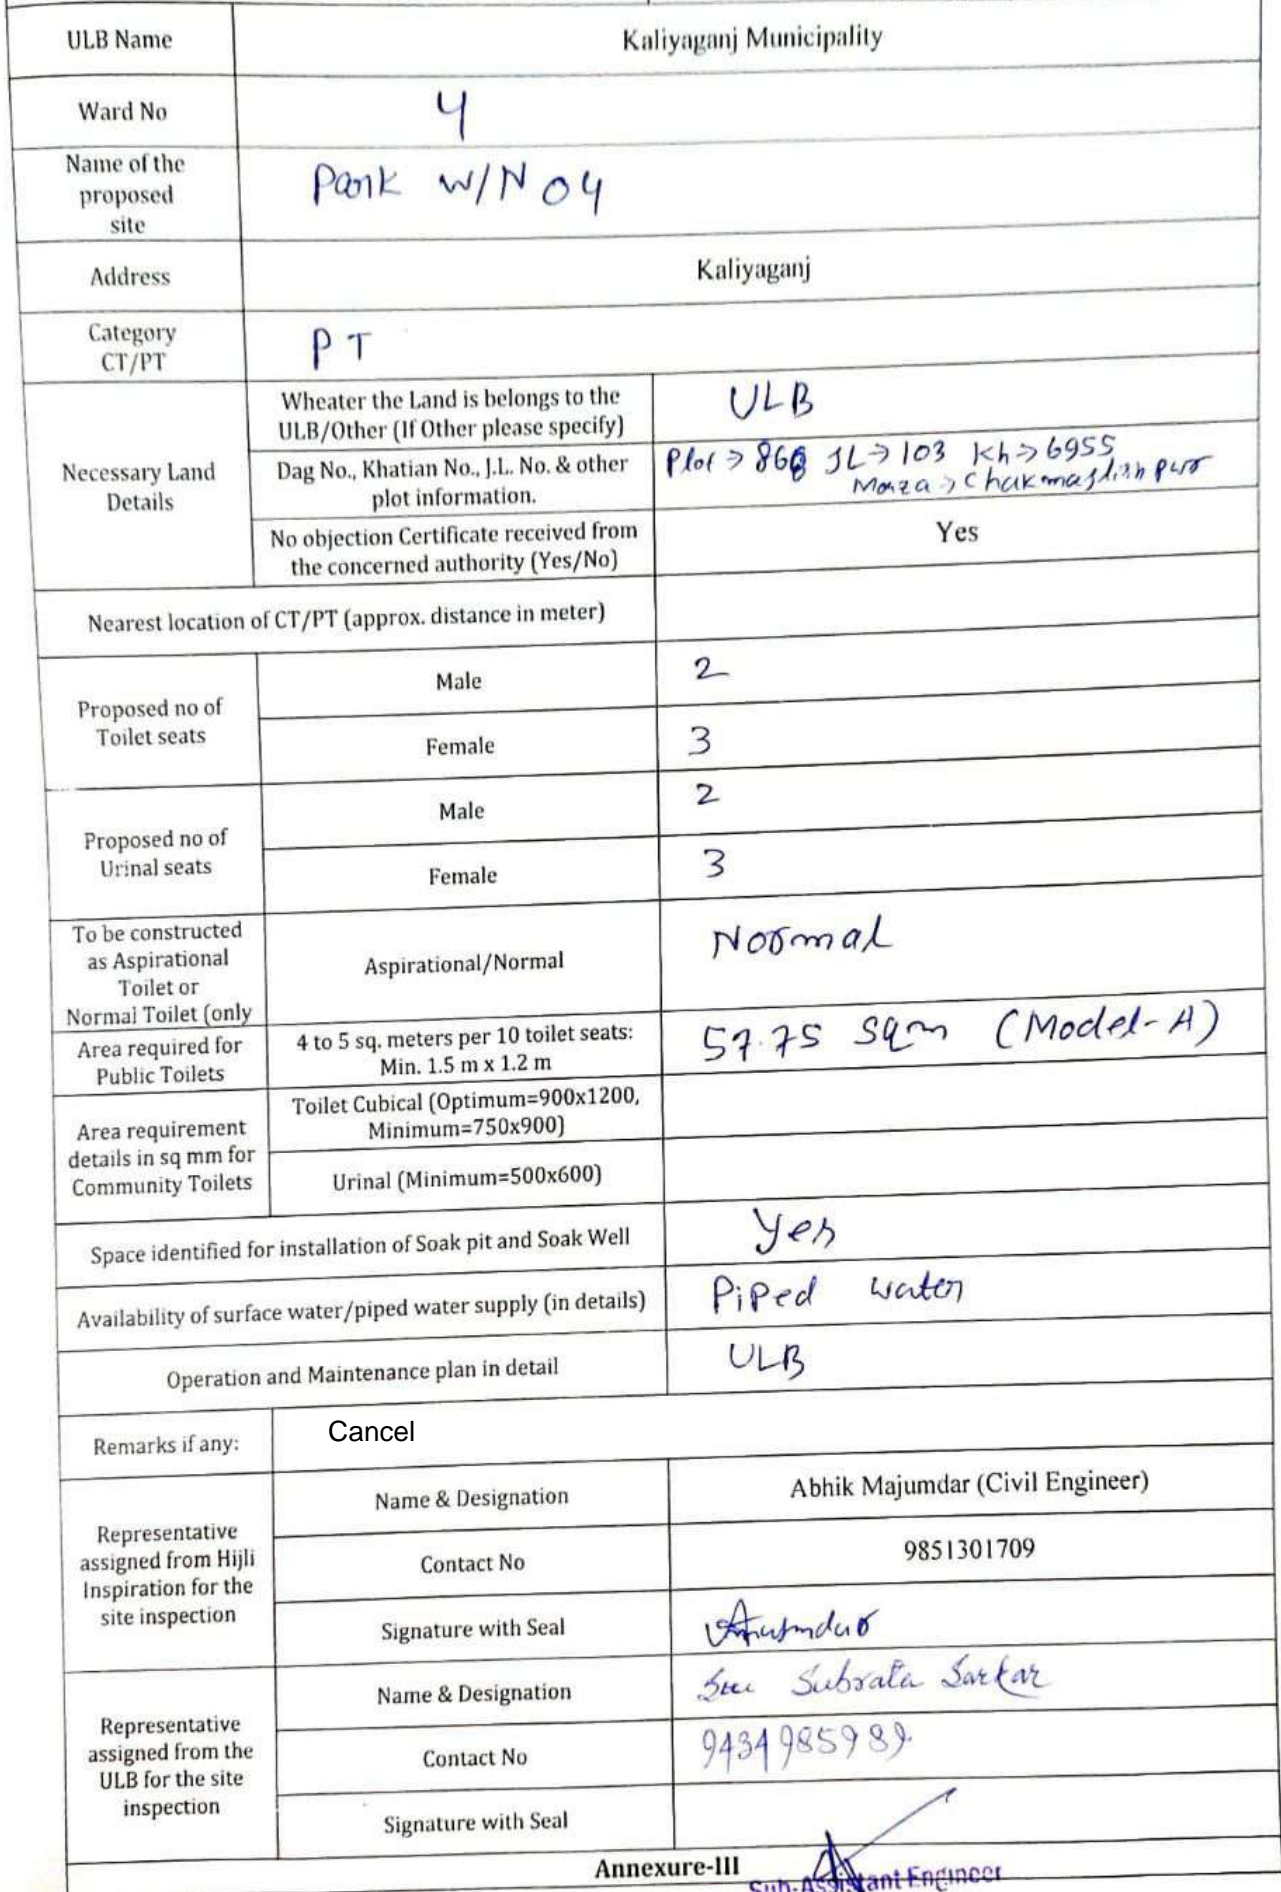 ULB Name
Kaliyaganj Municipality
Ward No
4
Name of the
proposed
site
Park W/N 04
Address
Kaliyaganj
Category
CT/PT
PT
Necessary Land
Details
Wheater the Land is belongs to the
ULB/Other (If Other please specify)
ULB
Dag No., Khatian No., J.L. No. & other
plot information.
Plot → JL → 103 Kh → 6955
Mouza →
No objection Certificate received from
the concerned authority (Yes/No)
Yes
Nearest location of CT/PT (approx. distance in meter)
Proposed no of
Toilet seats
Male
2
Female
3
Proposed no of
Urinal seats
Male
2
Female
3
To be constructed
as Aspirational
Toilet or
Normal Toilet (only
Aspirational/Normal
Normal
Area required for
Public Toilets
4 to 5 sq. meters per 10 toilet seats:
Min. 1.5 m x 1.2 m
57.75 Sqm (Model-A)
Area requirement
details in sq mm for
Community Toilets
Toilet Cubical (Optimum=900x1200,
Minimum=750x900)
Urinal (Minimum=500x600)
Space identified for installation of Soak pit and Soak Well
Yes
Availability of surface water/piped water supply (in details)
Piped water
Operation and Maintenance plan in detail
ULB
Remarks if any:
Cancel
Representative
assigned from Hijli
Inspiration for the
site inspection
Name & Designation
Abhik Majumdar (Civil Engineer)
Contact No
9851301709
Signature with Seal
Representative
assigned from the
ULB for the site
inspection
Name & Designation
Subrata Sarkar
Contact No
Signature with Seal
Annexure-III
Sub-Assistant Engineer